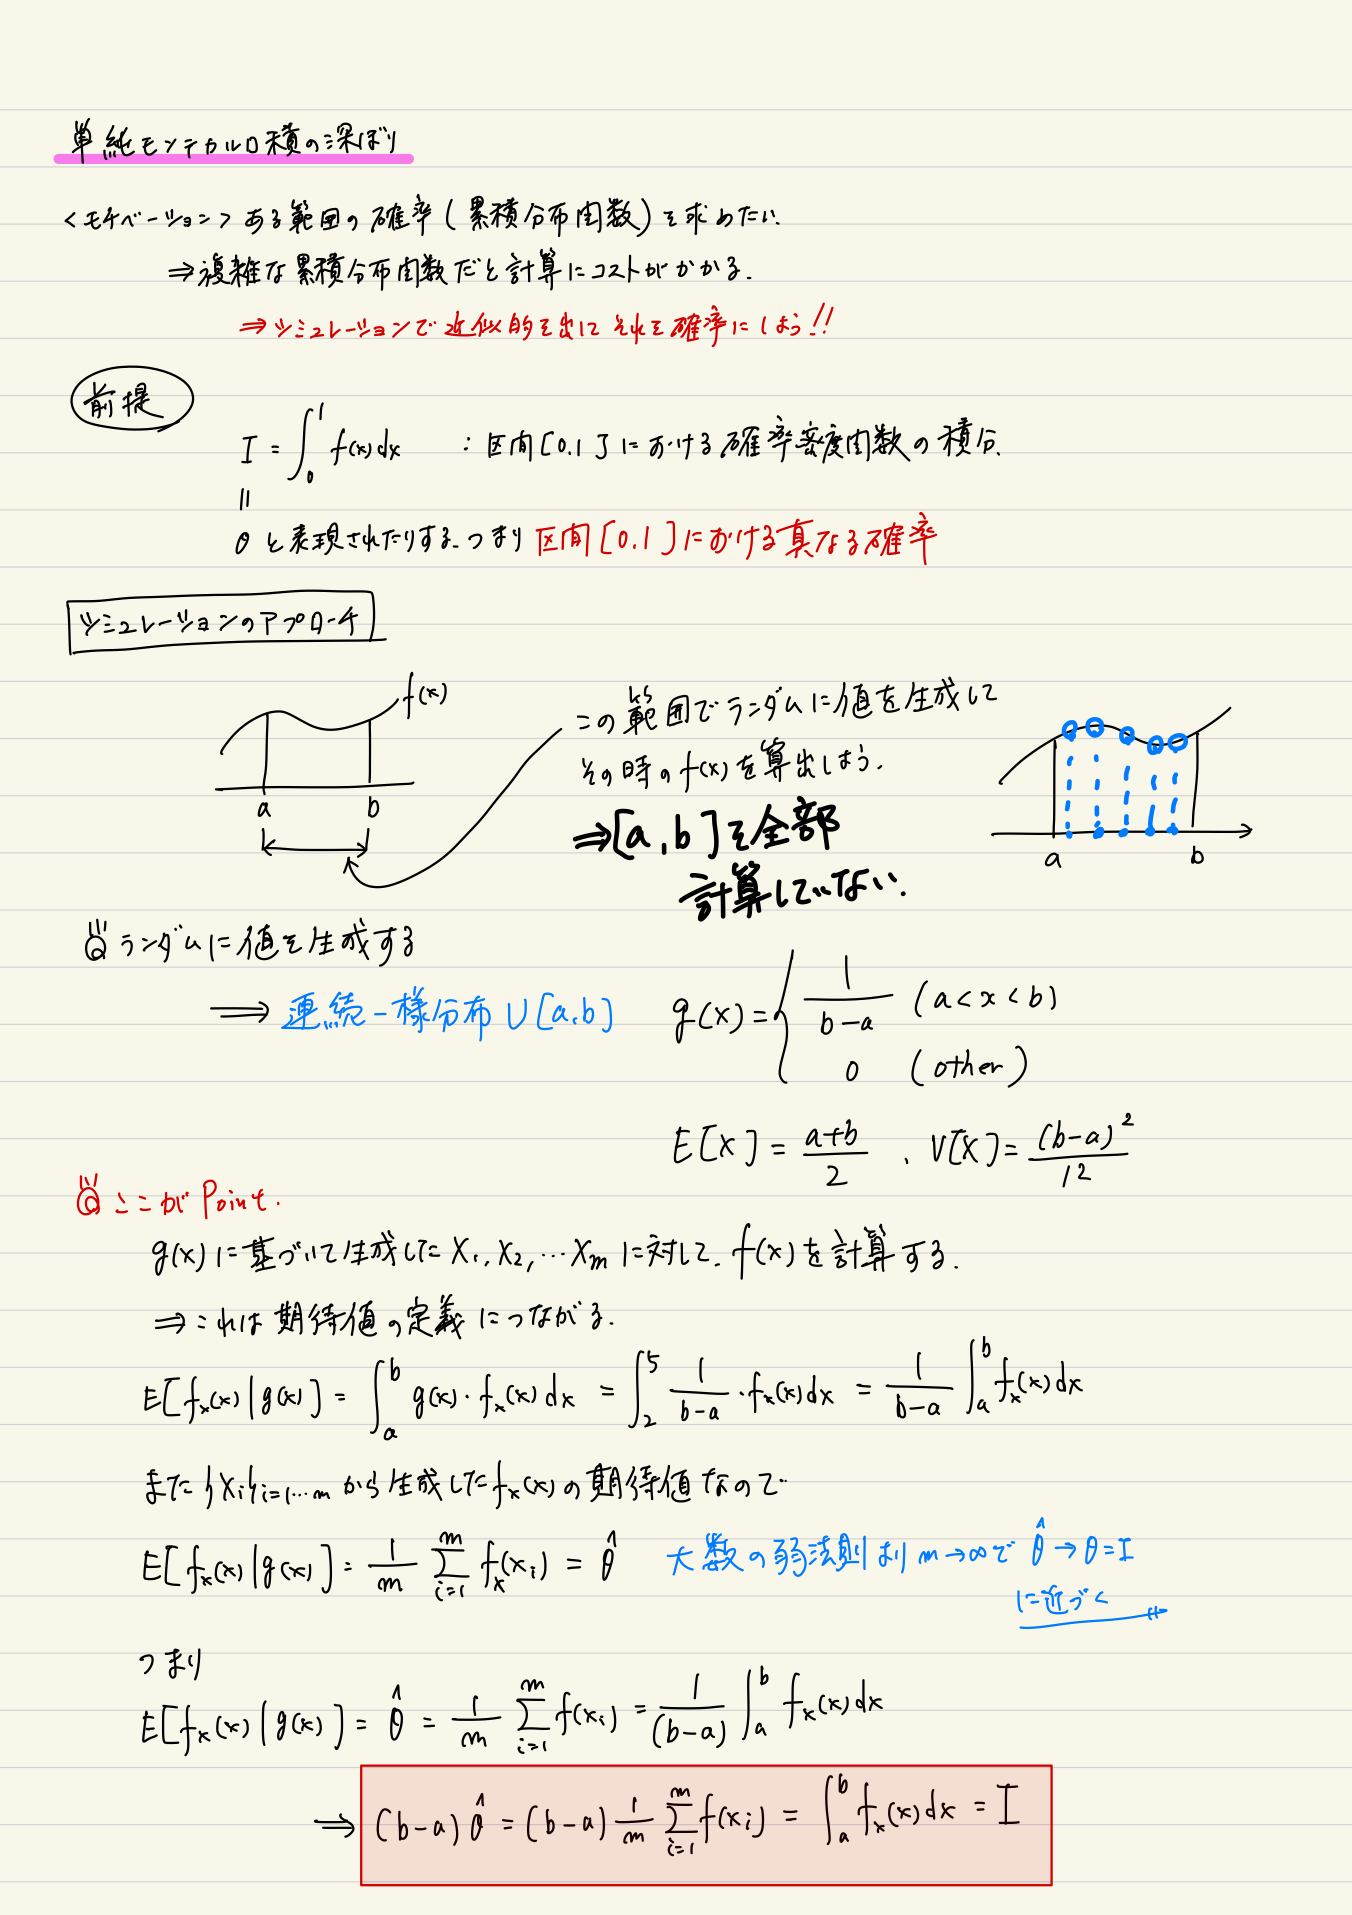 単純モンテカルロ積の深ぼり
<モチベーション> ある範囲の確率(累積分布関数)を求めたい.
⇒複雑な累積分布関数だと計算にコストがかかる.
⇒シミュレーションで近似的を出してそれを確率にしよう!!
前提
I = ∫_0^1 f(x)dx : 区間[0.1]における確率密度関数の積分.
||
θ と表現されたりする. つまり 区間[0.1]における真なる確率
シミュレーションのアプローチ
f(x)
a b
この範囲でランダムに値を生成して
その時のf(x)を算出しよう.
⇒[a,b]を全部
計算していない.
a b
ランダムに値を生成する
⇒ 連続一様分布 U[a.b]
g(x) = { 1/(b-a) (a<x<b)
0 (other)
E[X] = (a+b)/2 , V[X] = (b-a)^2/12
ここがPoint.
g(x)に基づいて生成した X_1, X_2, … X_m に対して. f(x)を計算する.
⇒これは期待値の定義につながる.
E[f_x(x)|g(x)] = ∫_a^b g(x)・f_x(x)dx = ∫_2^5 1/(b-a)・f_x(x)dx = 1/(b-a) ∫_a^b f_x(x)dx
また{x_i}_{i=1…m} から生成したf_x(x)の期待値なので
E[f_x(x)|g(x)] = 1/m Σ_{i=1}^m f_x(x_i) = θ̂ 大数の弱法則より m→∞で θ̂→θ=I
に近づく
つまり
E[f_x(x)|g(x)] = θ̂ = 1/m Σ_{i=1}^m f(x_i) = 1/(b-a) ∫_a^b f_x(x)dx
⇒ (b-a)θ̂ = (b-a) 1/m Σ_{i=1}^m f(x_i) = ∫_a^b f_x(x)dx = I